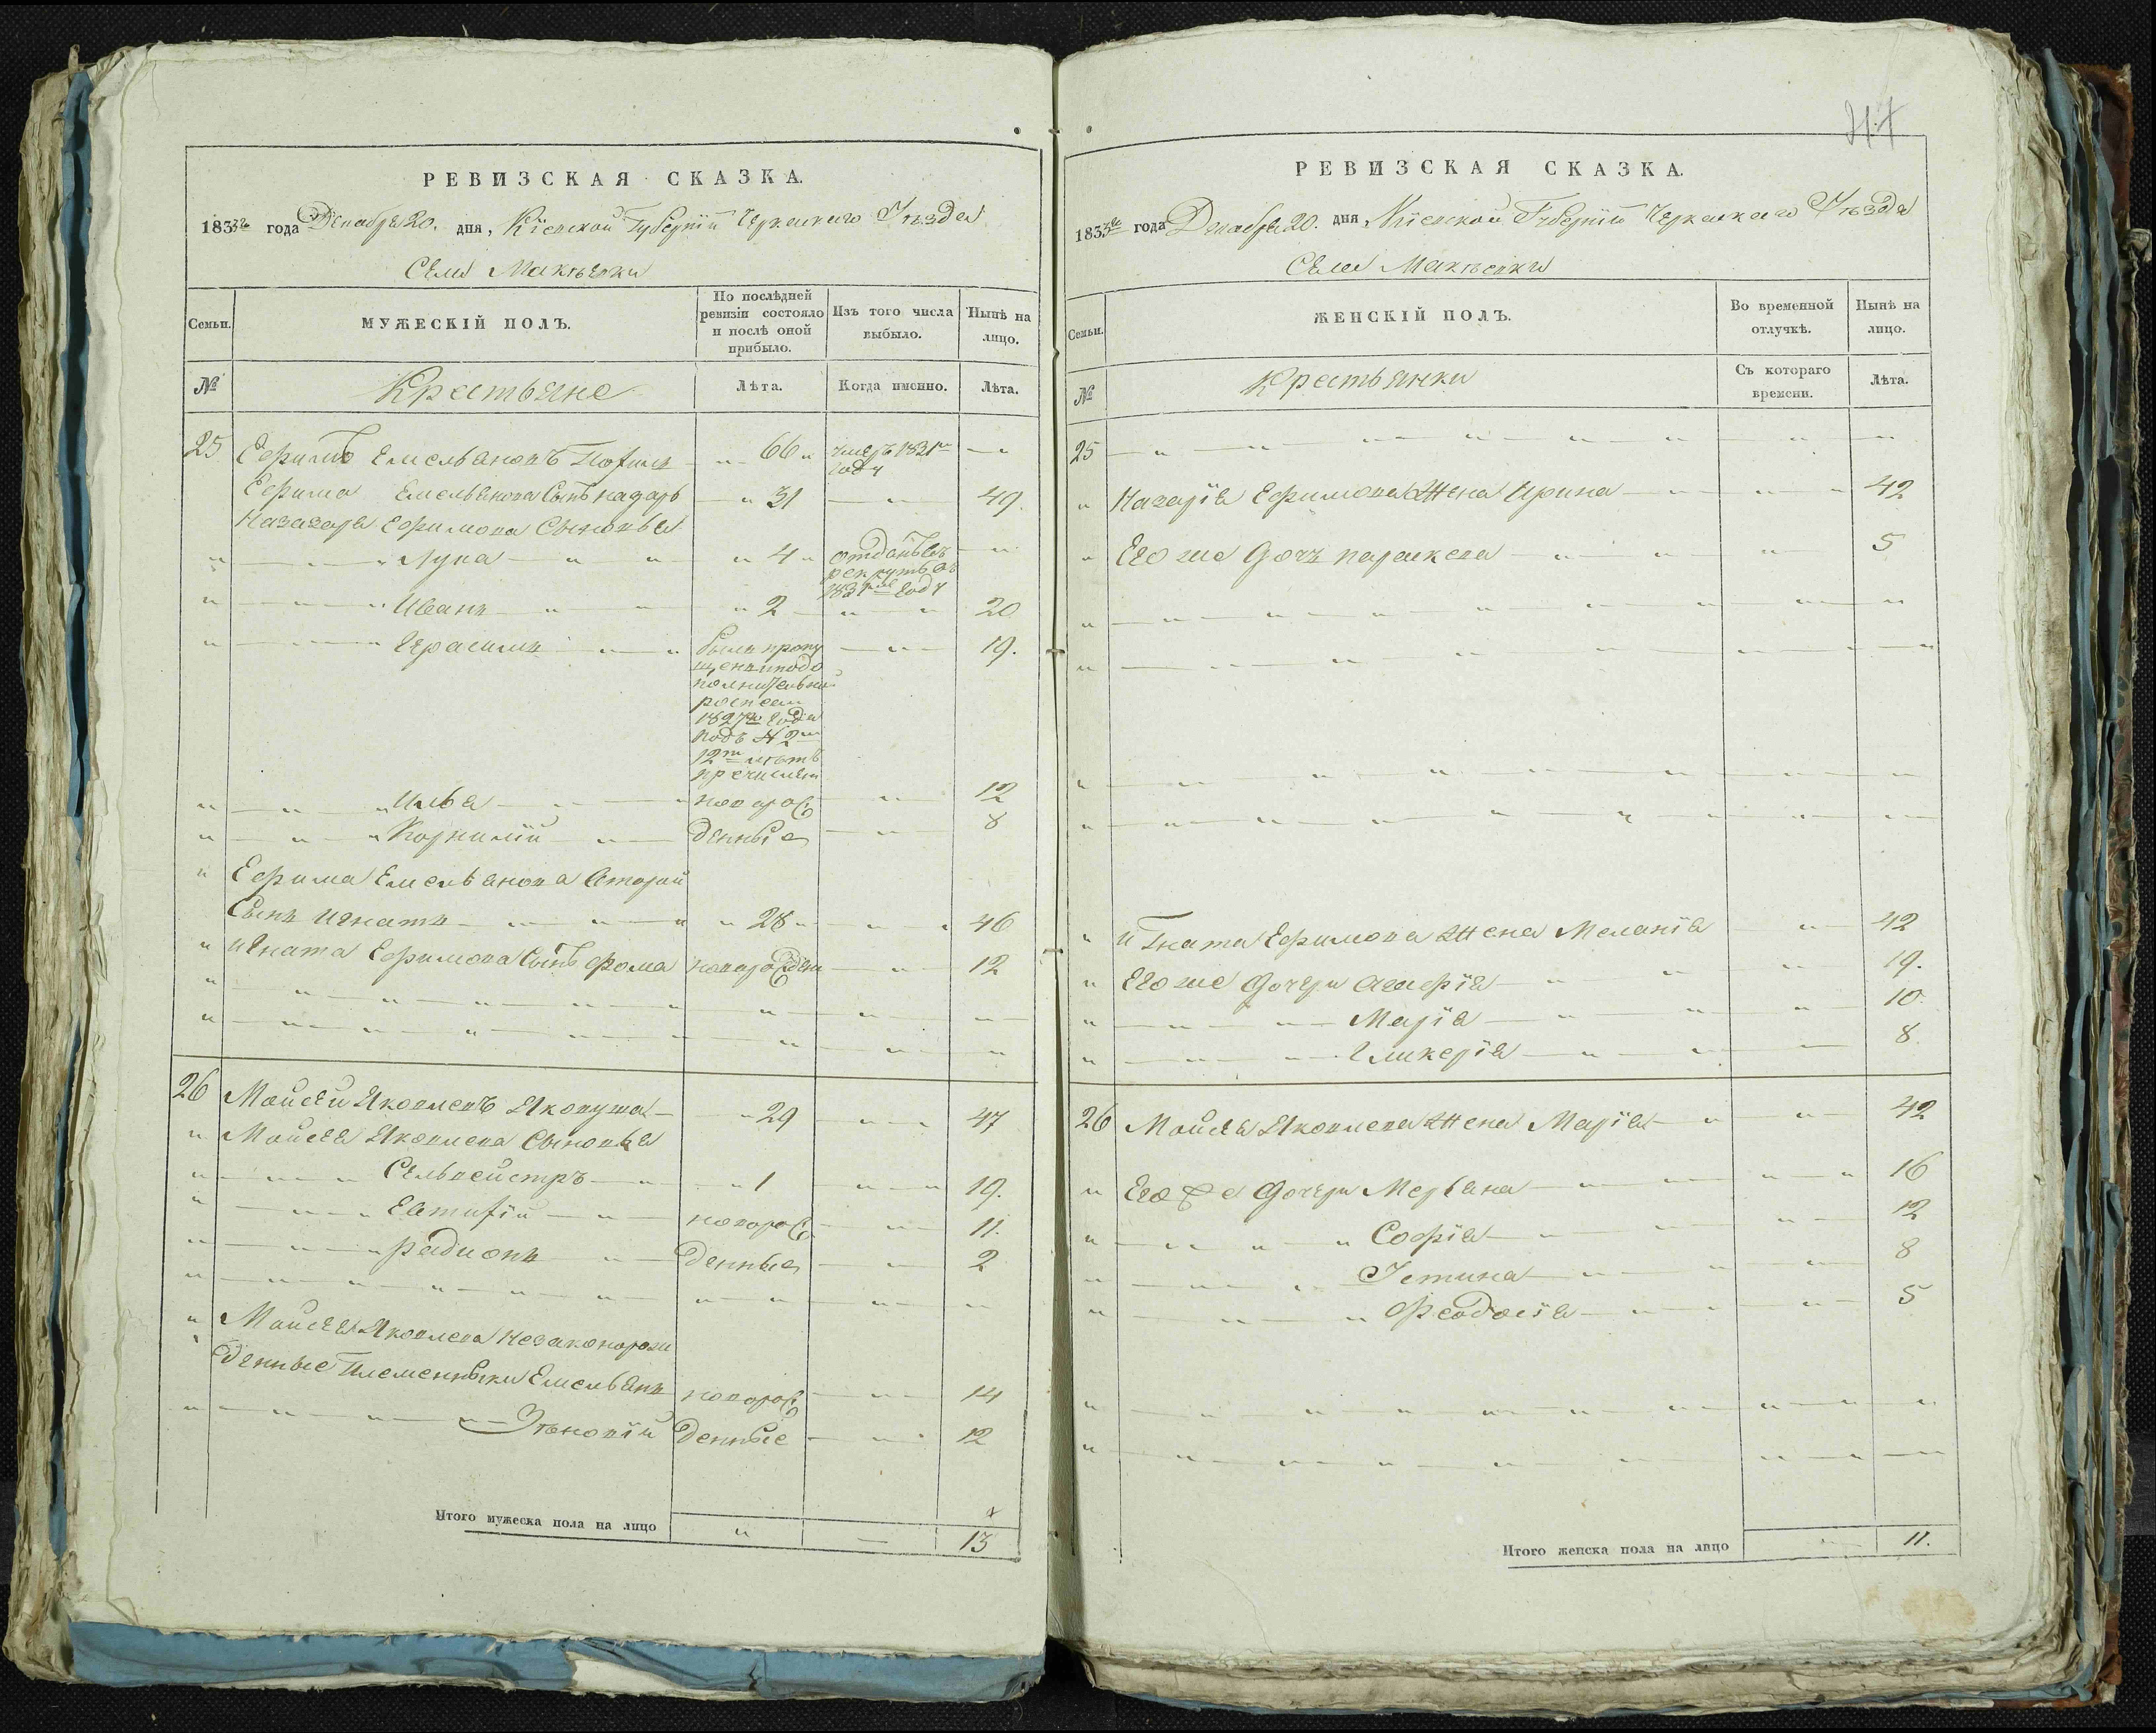 РЕВИЗСКАЯ СКАЗКА.
1833го года Декабря 20. дня, Кіевской Губерніи Черкаскаго Уѣзда
Села Макѣевки
Семьи.
МУЖЕСКІЙ ПОЛЪ.
По послѣдней ревизіи состояло и послѣ оной прибыло.
Изъ того числа выбыло.
Нынѣ на лицо.
№
Крестьяне
Лѣта.
Когда именно.
Лѣта.
25 Ефимъ Емельяновъ 66 умеръ 1821го году
Ефима Емельянова Сынъ назарь 31 49.
Назаря Ефимова Сыновья
Лука 4 отданъ въ рекруты въ году
Иванъ 2 20
Герасимъ былъ пропущенъ и по дополнительной росписи 1827го года подъ № 2м 12ти лѣтъ причисленъ 19.
Илья новорож 12
Корнилій денные 8
Ефима Емельянова второй
Сынъ Игнатъ 28 46
Игната Ефимова Сынъ фома новорожден 12
26 Мойсей Яковлевъ Якопуша 29 47
Мойсея Яковлева Сыновья
Сельвейстръ 1 19.
Евтифій новорож 11.
радионъ денные 2
Мойсея Яковлева незаконорож
денные Племенныки Емельянъ новорож 14
Зѣновій денные 12
Итого мужеска пола на лицо 13
47
РЕВИЗСКАЯ СКАЗКА.
1833го года Декабря 20. дня Кіевской Губерніи Черкаскаго Уѣзда
Села Макѣевки
Семьи.
ЖЕНСКІЙ ПОЛЪ.
Во временной отлучкѣ.
Нынѣ на лицо.
№
Крестьянки
Съ котораго времени.
Лѣта.
25
Назарія Ефимова Жена Ирина 42
Его же дочь параскева 5
Игната Ефимова Жена Меланія 42
Его же дочери Агафія 19.
Марія 10.
Гликерія 8
26 Мойсея Яковлева Жена Марія 42
Его же дочери Меряна 16
Софія 12
Устина 8
Феодосія 5
Итого женска пола на лицо 11.